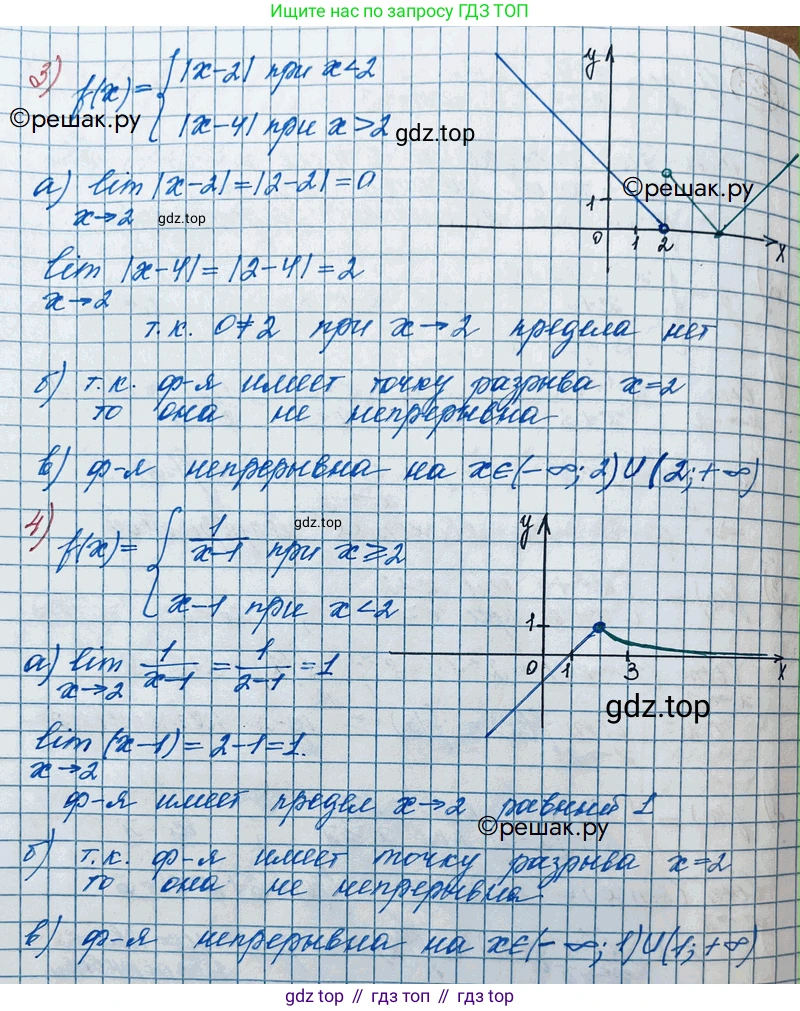 Ищите нас по запросу ГДЗ ТОП
3) f(x) = { |x-2| при x<2
|x-4| при x>2
©решак.ру
gdz.top
y
1
0 1 2 x
©решак.ру
а) lim |x-2| = |2-2| = 0
x→2
gdz.top
lim |x-4| = |2-4| = 2
x→2
т.к. 0≠2 при x→2 предела нет
б) т.к. ф-я имеет точку разрыва x=2
то она не непрерывна
в) ф-я непрерывна на x∈(-∞; 2)∪(2; +∞)
gdz.top
4) f(x) = { 1/(x-1) при x⩾2
x-1 при x<2
y
1
0 1 3 x
gdz.top
а) lim 1/(x-1) = 1/(2-1) = 1
x→2
lim (x-1) = 2-1 = 1.
x→2
ф-я имеет предел x→2 равный 1
©решак.ру
б) т.к. ф-я имеет точку разрыва x=2
то она не непрерывна
в) ф-я непрерывна на x∈(-∞; 1)∪(1; +∞)
gdz top // гдз топ // gdz top // гдз топ